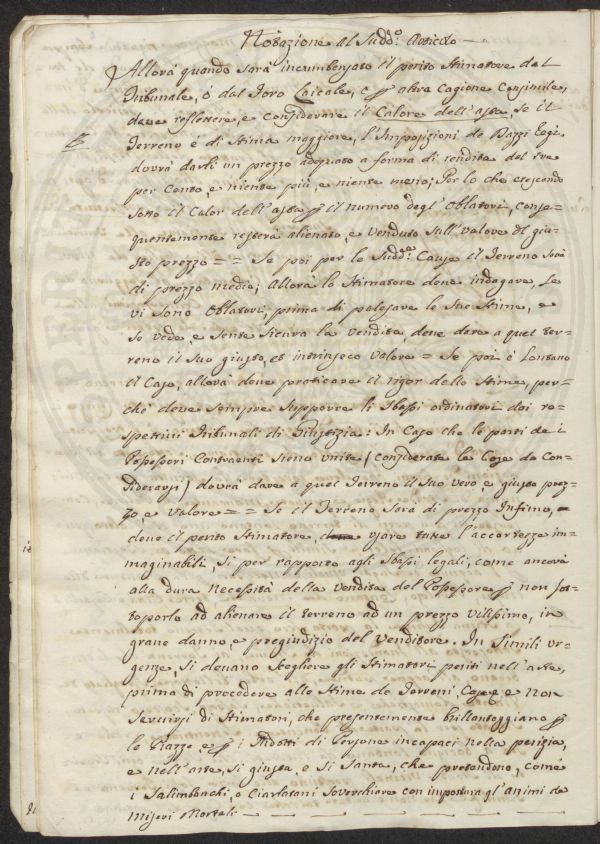 Notazione al Sudd.º Articolo —
Allora quando sarà incumbenzato il perito Stimatore dal
Tribunale, ò dal Foro Laicale, e per altra Cagione Consimile,
deve reflettere, e Considerare il Calore dell'asta, Se il
Terreno è di Stima maggiore, l'Imposizioni de Dazzi
dovrà darli un prezzo adequato a forma di rendita del tre
per Cento, e niente più, e niente meno; Per lo che crescendo
sotto il Calor dell'asta per il numero degl'Oblatori, conse=
quentemente resterà alienato, e Venduto sull'Valore del giu=
sto prezzo = = Se poi per le Sudd.e Cause il Terreno sarà
di prezzo medio; Allora lo Stimatore deve indagare, Se
vi sono Oblatori, prima di palesare le Sue Stime, e
Se vede, e sente sicura la Vendita deve dare a quel ter=
reno il Suo giusto, et intrinseco Valore = Se poi è Lontano
il Caso, allora deve praticare il rigor delle Stime, per=
ché deve sempre supporre li Sbassi ordinatori dai re=
spettivi Tribunali di Giustizia: In Caso che le parti de i
Possessori Contraenti sieno unite / Considerate le Cose da Con=
siderarsi / dovrà dare a quel Terreno il Suo vero, e giusto prez=
zo, e Valore = = Se il Terreno Sarà di prezzo Infimo,
deve il perito Stimatore, usare tutte l'accortezze im=
maginabili, Si per rapporto agli Sbassi legali, come ancora
alla dura Necessità della Vendita del Possessore per non sot=
toporlo ad alienare il terreno ad un prezzo Vilissimo, in
grave danno, e pregiudizio del Venditore. In Simili ur=
genze, Si devano Scegliere gli Stimatori periti nell'arte,
prima di procedere alle Stime de Terreni, Case e Non
Servirsi di Stimatori, che presentemente brillanteggiano per
le Piazze e per i Ridotti di Persone incapaci nella perizia,
e nell'arte, Si giusta, e Si Santa, che pretendono, come
i Salimbanchi, o Ciarlatani Soverchiare con impostura gl'animi de
Miseri Mortali —